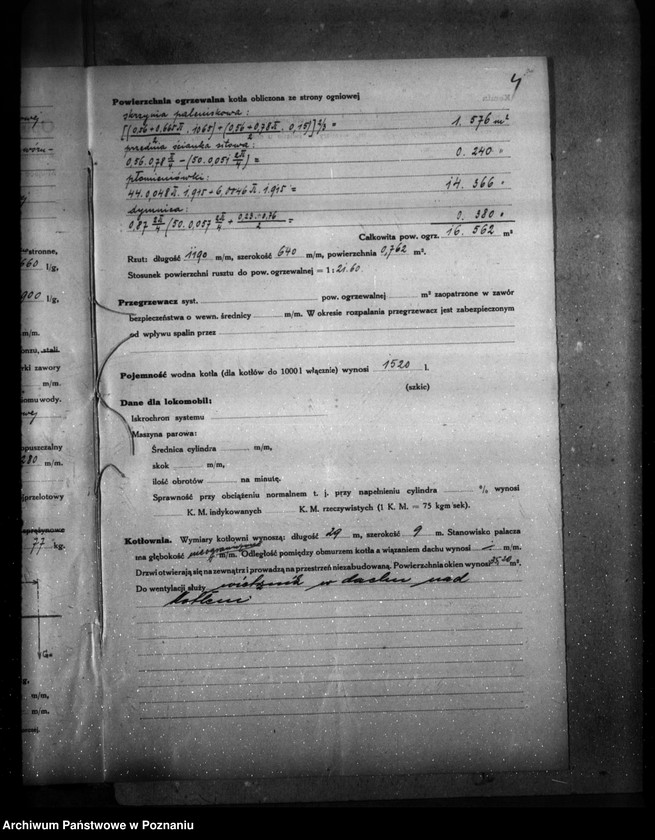 4
Powierzchnia ogrzewalna kotła obliczona ze strony ogniowej
skrzynia paleniskowa:
1. 576 m²
przednia ścianka sitowa:
0.56.078 π/4 - (50.0,051 2π/4) =
0. 240 "
płomieniówki:
44.0,048 π. 1,915 + 6.0,046 π. 1.915 =
14. 366 "
dymnica:
0. 380 "
Całkowita pow. ogrz. 16. 562 m²
Rzut: długość 1190 m/m, szerokość 640 m/m, powierzchnia 0,762 m².
Stosunek powierzchni rusztu do pow. ogrzewalnej = 1: 21.60.
Przegrzewacz syst. pow. ogrzewalnej m² zaopatrzone w zawór
bezpieczeństwa o wewn. średnicy m/m. W okresie rozpalania przegrzewacz jest zabezpieczonym
od wpływu spalin przez
Pojemność wodna kotła (dla kotłów do 1000 l włącznie) wynosi 1520 l.
(szkic)
Dane dla lokomobil:
Iskrochron systemu
Maszyna parowa:
Średnica cylindra m/m,
skok m/m,
ilość obrotów na minutę.
Sprawność przy obciążeniu normalnem t. j. przy napełnieniu cylindra % wynosi
K. M. indykowanych K. M. rzeczywistych (1 K. M. = 75 kgm/sek).
Kotłownia. Wymiary kotłowni wynoszą: długość 29 m, szerokość 9 m. Stanowisko palacza
ma głębokość nieograniczoną m/m. Odległość pomiędzy obmurzem kotła a wiązaniem dachu wynosi - m/m.
Drzwi otwierają się na zewnątrz i prowadzą na przestrzeń niezabudowaną. Powierzchnia okien wynosi 35.20 m².
Do wentylacji służy wietrznik w dachu nad
kotłem
stronne,
660 l/g,
900 l/g,
m/m.
onzu, stali.
rki zawory
m/m.
iomu wody.
opuszczalny
280 m/m.
przelotowy
sprężynowe
77 kg.
G=
g,
m/m,
m/m.
Archiwum Państwowe w Poznaniu